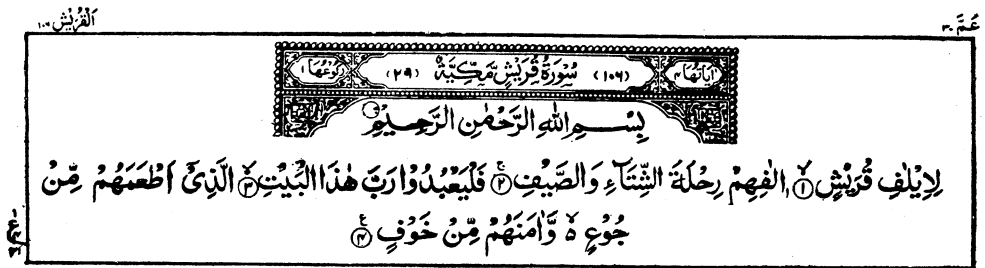 عَمَّ ٣٠
اَلْقُرَيْش ١٠٦
اٰيَاتُهَا ٤ (١٠٦) سُوْرَةُ قُرَيْشٍ مَّكِّيَّةٌ (٢٩) رُكُوْعُهَا ١
بِسْمِ اللهِ الرَّحْمٰنِ الرَّحِيْمِ
لِاِيْلٰفِ قُرَيْشٍ ۙ‏﴿١﴾ اٖلٰفِهِمْ رِحْلَةَ الشِّتَآءِ وَالصَّيْفِ ۚ‏﴿٢﴾ فَلْيَعْبُدُوْا رَبَّ هٰذَا الْبَيْتِ ۙ‏﴿٣﴾ الَّذِىْٓ اَطْعَمَهُمْ مِّنْ
جُوْعٍ ۙ۬ وَّاٰمَنَهُمْ مِّنْ خَوْفٍ ۠‏﴿٤﴾